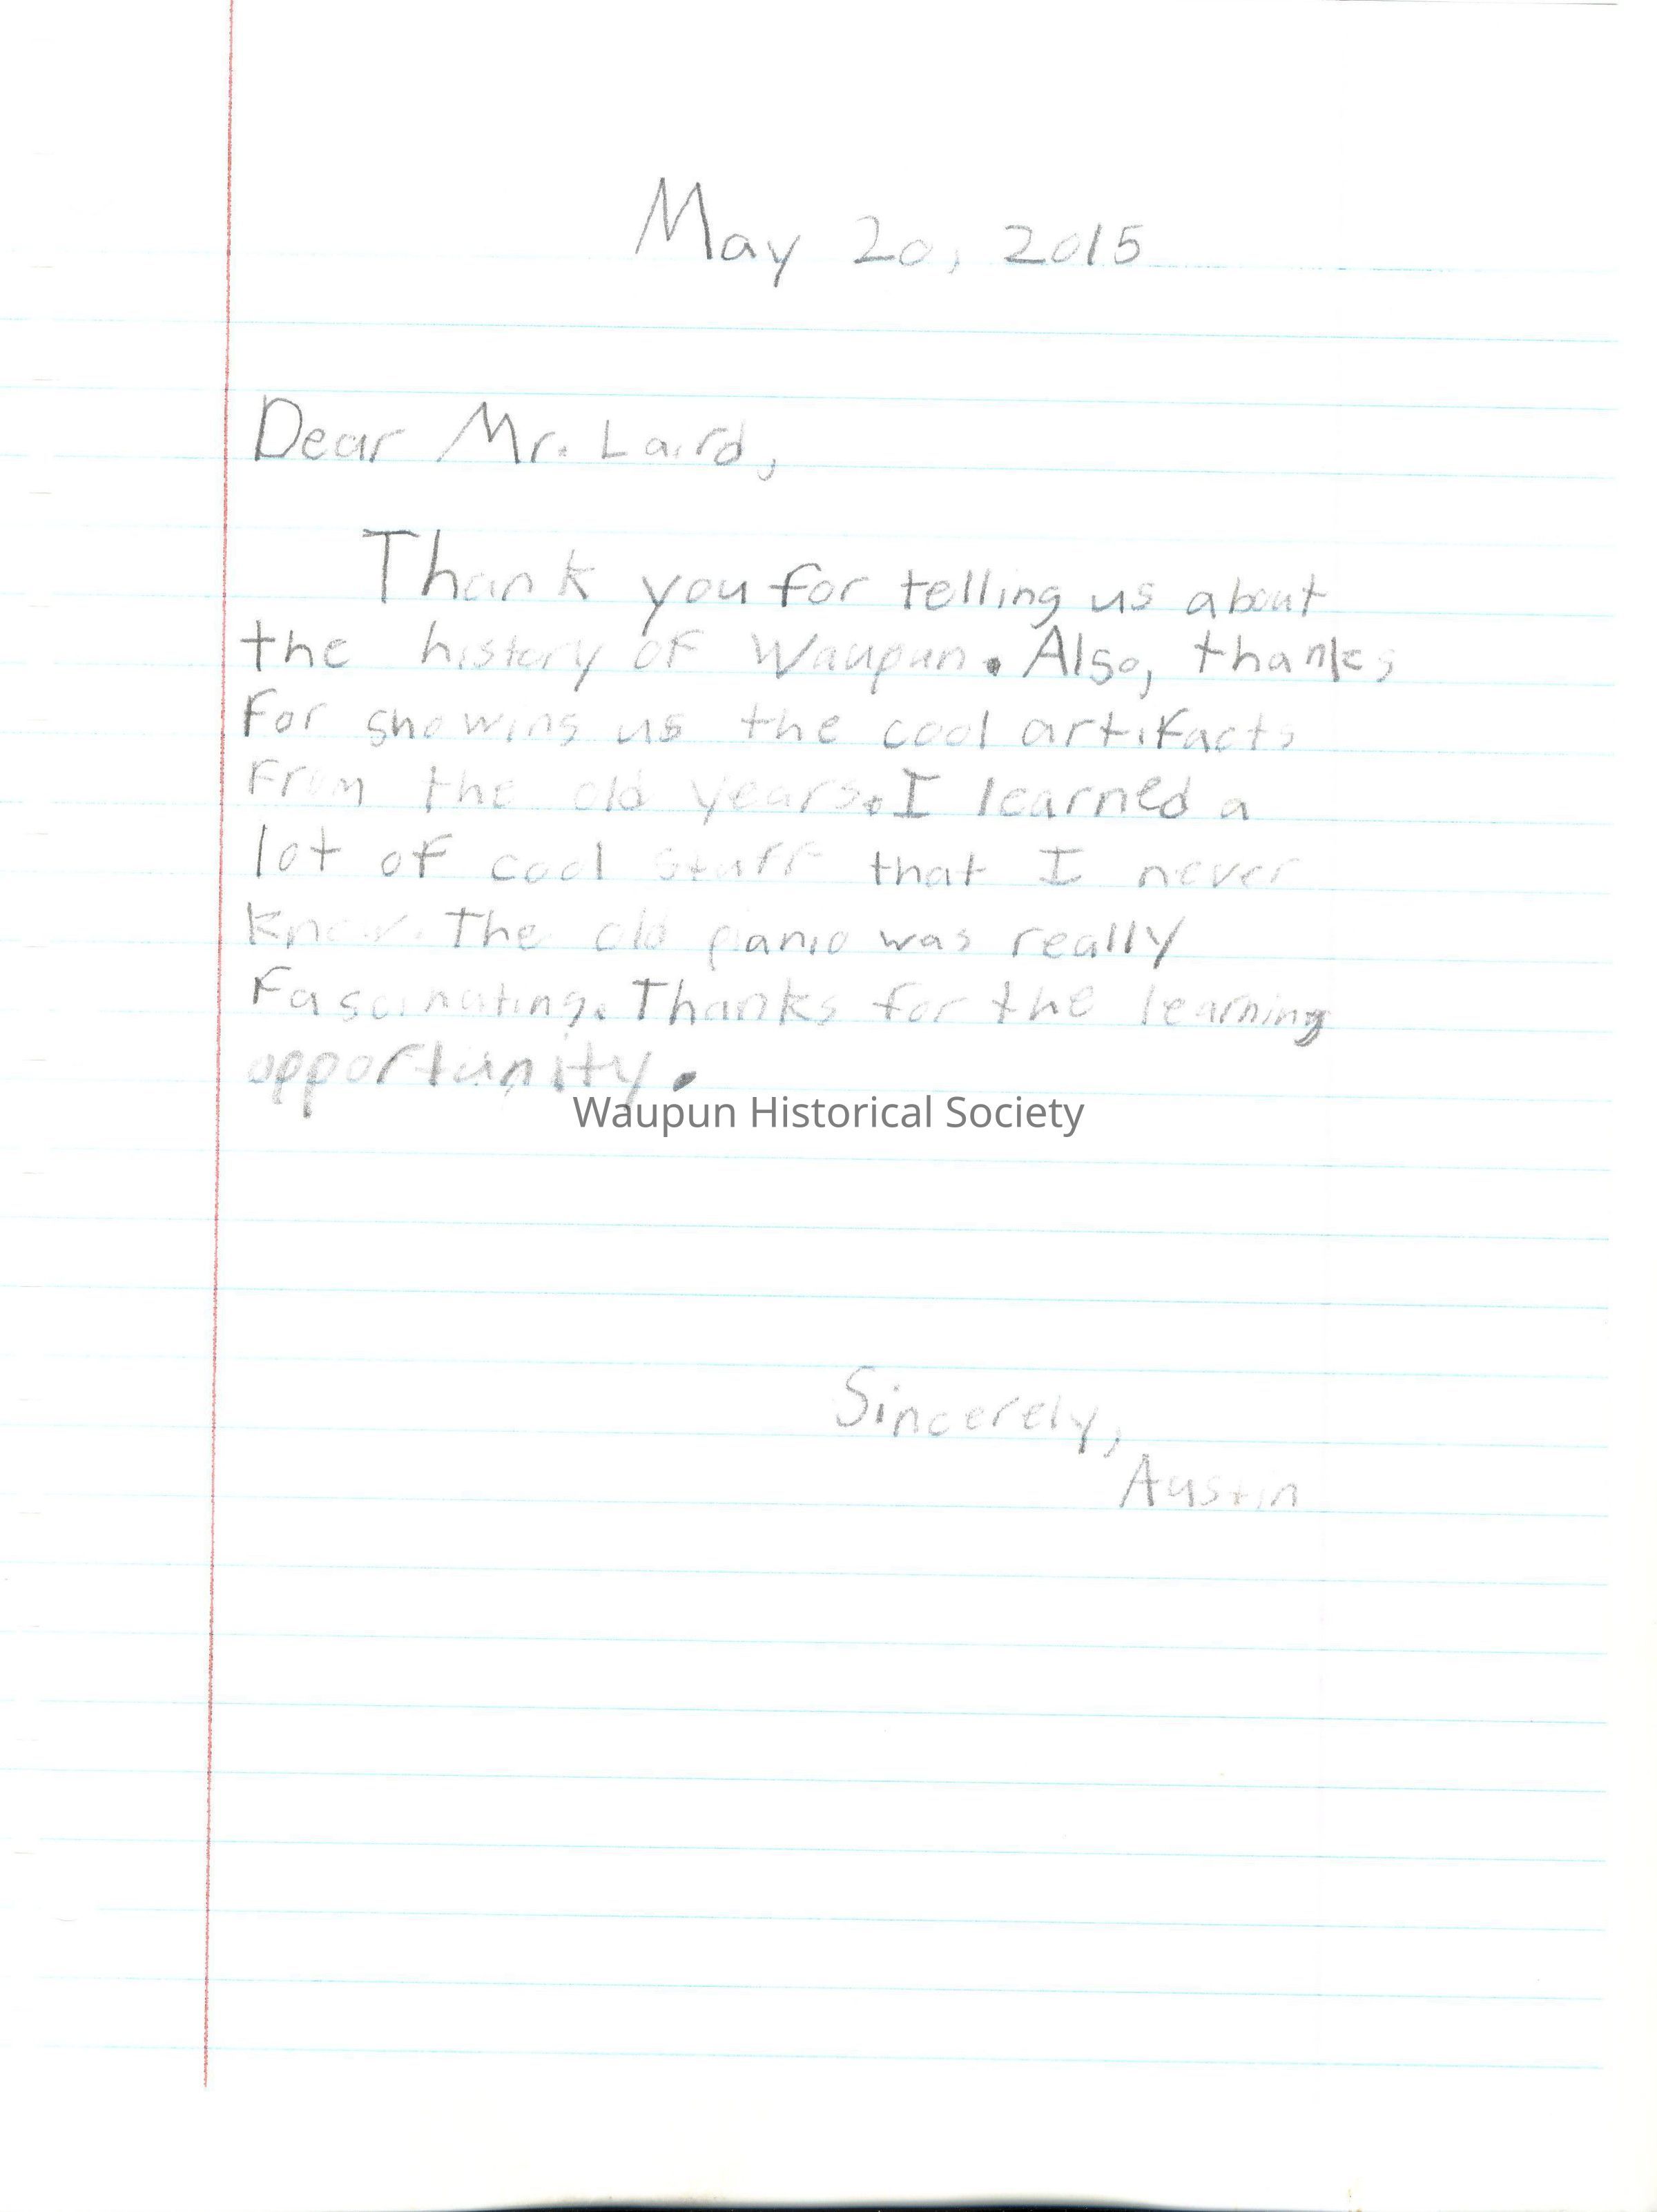 May 20, 2015
Dear Mr. Laird,
Thank you for telling us about
the history of Waupun. Also, thanks
for showing us the cool artifacts
from the old years. I learned a
lot of cool stuff that I never
knew. The old piano was really
fascinating. Thanks for the learning
opportunity.
Waupun Historical Society
Sincerely,
Austin